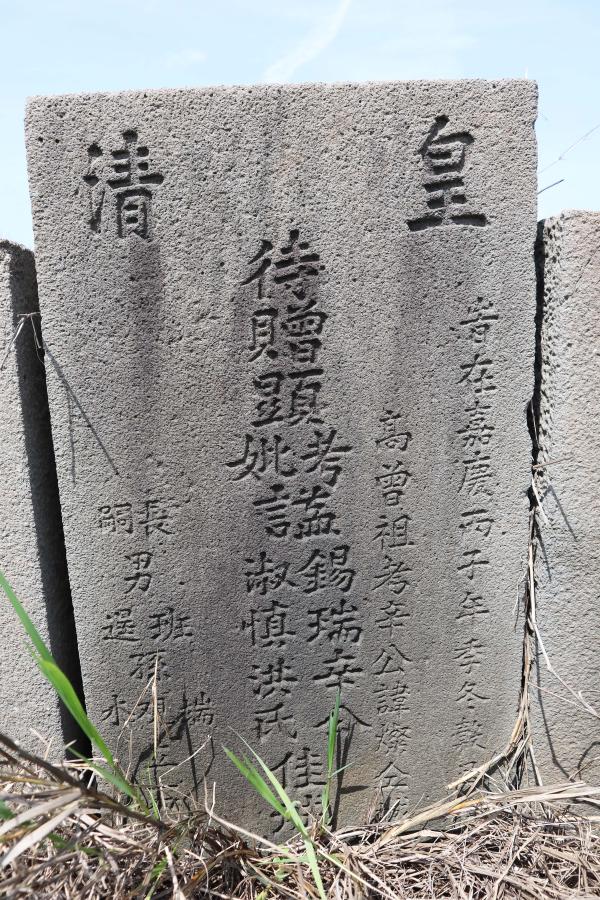 皇清
旹在嘉慶丙子年季冬穀
高曾祖考辛公諱燦
待贈顯考諡錫瑞辛公
妣諡淑慎洪氏佳
長男班瑞
嗣男選
孫
永